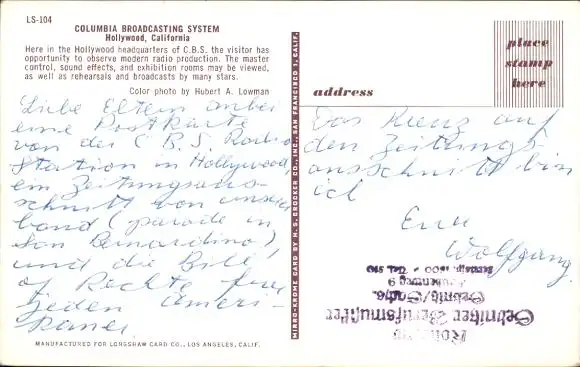 LS-104
COLUMBIA BROADCASTING SYSTEM
Hollywood, California
Here in the Hollywood headquarters of C.B.S. the visitor has
opportunity to observe modern radio production. The master
control, sound effects, and exhibition rooms may be viewed,
as well as rehearsals and broadcasts by many stars.
Color photo by Hubert A. Lowman
Liebe Eltern anbei
eine Postkarte
von der C.B.S. Radio
Station in Hollywood,
ein Zeitungsaus-
schnitt von unsrer
band (parade in
San Bernardino)
und die Bill
of Rechte fuer
jeden Ameri-
kaner.
MANUFACTURED FOR LONGSHAW CARD CO., LOS ANGELES, CALIF.
MIRRO-KROME CARD BY H. S. CROCKER CO., INC., SAN FRANCISCO 1, CALIF.
place
stamp
here
address
Das Kreuz auf
den Zeitungs-
ausschnitt bin
ich
Euer
Wolfgang.
Sebnitzer Berufsmusiker
Sebnitz/Sachs.